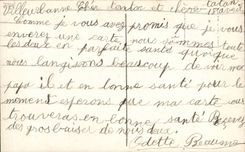 Villeurbanne Cher tonton et chère tatan
Comme je vous avez promis que je vous
enverez une carte nou sommes toute
les deux en parfaite santé quoique
nous langisons beaucoup de mon
papa il et en bonne santé pour le
moment esperons que ma carte vous
trouveras en bonne santé Recevez
des gros baiser de nous deux.
Odette Beaume